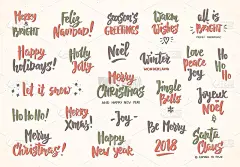 Merry & BRIGHT
Feliz Navidad!
Season's GREETINGS
Warm Wishes
all is Bright
Happy Holidays!
Noël
Winter WONDERLAND
Love Peace Joy
Ho Ho Ho
let it snow
Merry Christmas
AND HAPPY NEW YEAR
Jingle Bells
Joyeux Noël
Ho Ho Ho!
Merry Xmas!
Joy
Be Merry
&
Santa Claus
Merry Christmas!
Happy New Year
2018